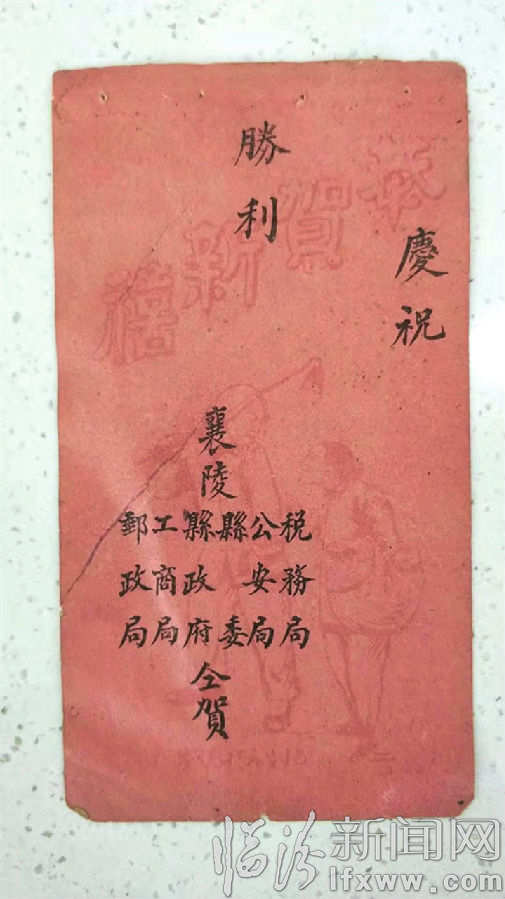 慶祝
勝利
恭賀新禧
襄陵
税務局
公安局
縣委
縣政府
工商局
郵政局
仝賀
临汾新闻网
lfxww.com